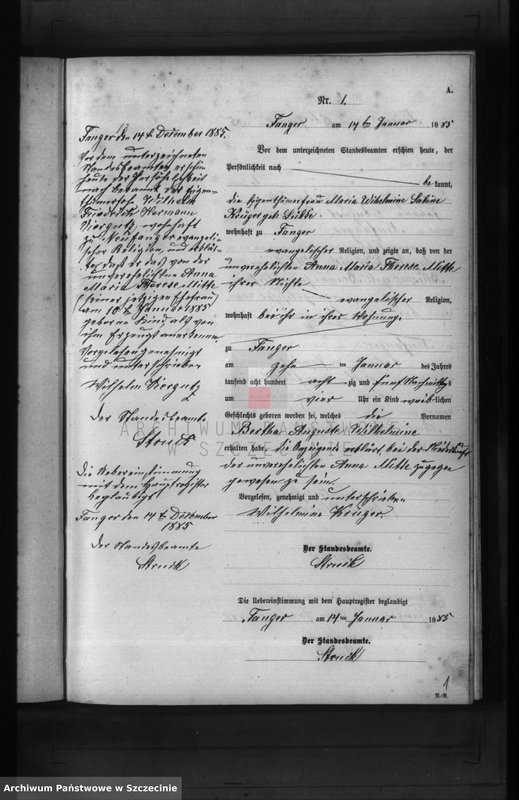 A.
Nr. 1.
Tanger am 14ten Januar 1885
Vor dem unterzeichneten Standesbeamten erschien heute, der
Persönlichkeit nach
be kannt,
die Eigenthümerfrau Maria Wilhelmine Sabine
Krüger geb. Lübke
wohnhaft zu Tanger
evangelischer Religion, und zeigte an, daß von der
unverehelichten Anna Maria Therese Mitte
ihrer Nichte
evangelischer Religion,
wohnhaft bei ihr in ihrer Wohnung
zu Tanger
am zehn ten Januar des Jahres
tausend acht hundert acht zig und fünf Nachmittags
um vier Uhr ein Kind weiblichen
Geschlechts geboren worden sei, welches die Vornamen
Bertha Auguste Wilhelmine
erhalten habe. Die Anzeigende erklärt bei der Niederkunft
der unverehelichten Anna Mitte zugegen
gewesen zu sein.
Vorgelesen, genehmigt und unterschrieben
Wilhelmine Krüger
Der Standesbeamte.
Struck
Die Uebereinstimmung mit dem Hauptregister beglaubigt
Tanger am 14ten Januar 1885
Der Standesbeamte.
Struck
1
N.-R.
Tanger den 14t Dezember 1885.
Vor dem unterzeichneten
Standesbeamten erschien
heute der Persönlichkeit
nach bekannt der Eigen-
thümersohn Wilhelm
Friedrich Hermann
wohnhaft
zu evangeli-
scher Religion, und erklär-
te, daß er das von der
unverehelichten Anna
Maria Therese Mitte
seiner jetzigen Ehefrau
am 10ten Januar 1885
geborene Kind als von
ihm erzeugt anerkenne.
Vorgelesen genehmigt
und unterschrieben
Wilhelm
Der Standesbeamte
Struck
Die Uebereinstimmung
mit dem Hauptregister
beglaubigt
Tanger den 14t Dezember
1885
Der Standesbeamte
Struck
ARCHIWUM PAŃSTWOWE
W SZCZECINIE
Archiwum Państwowe w Szczecinie